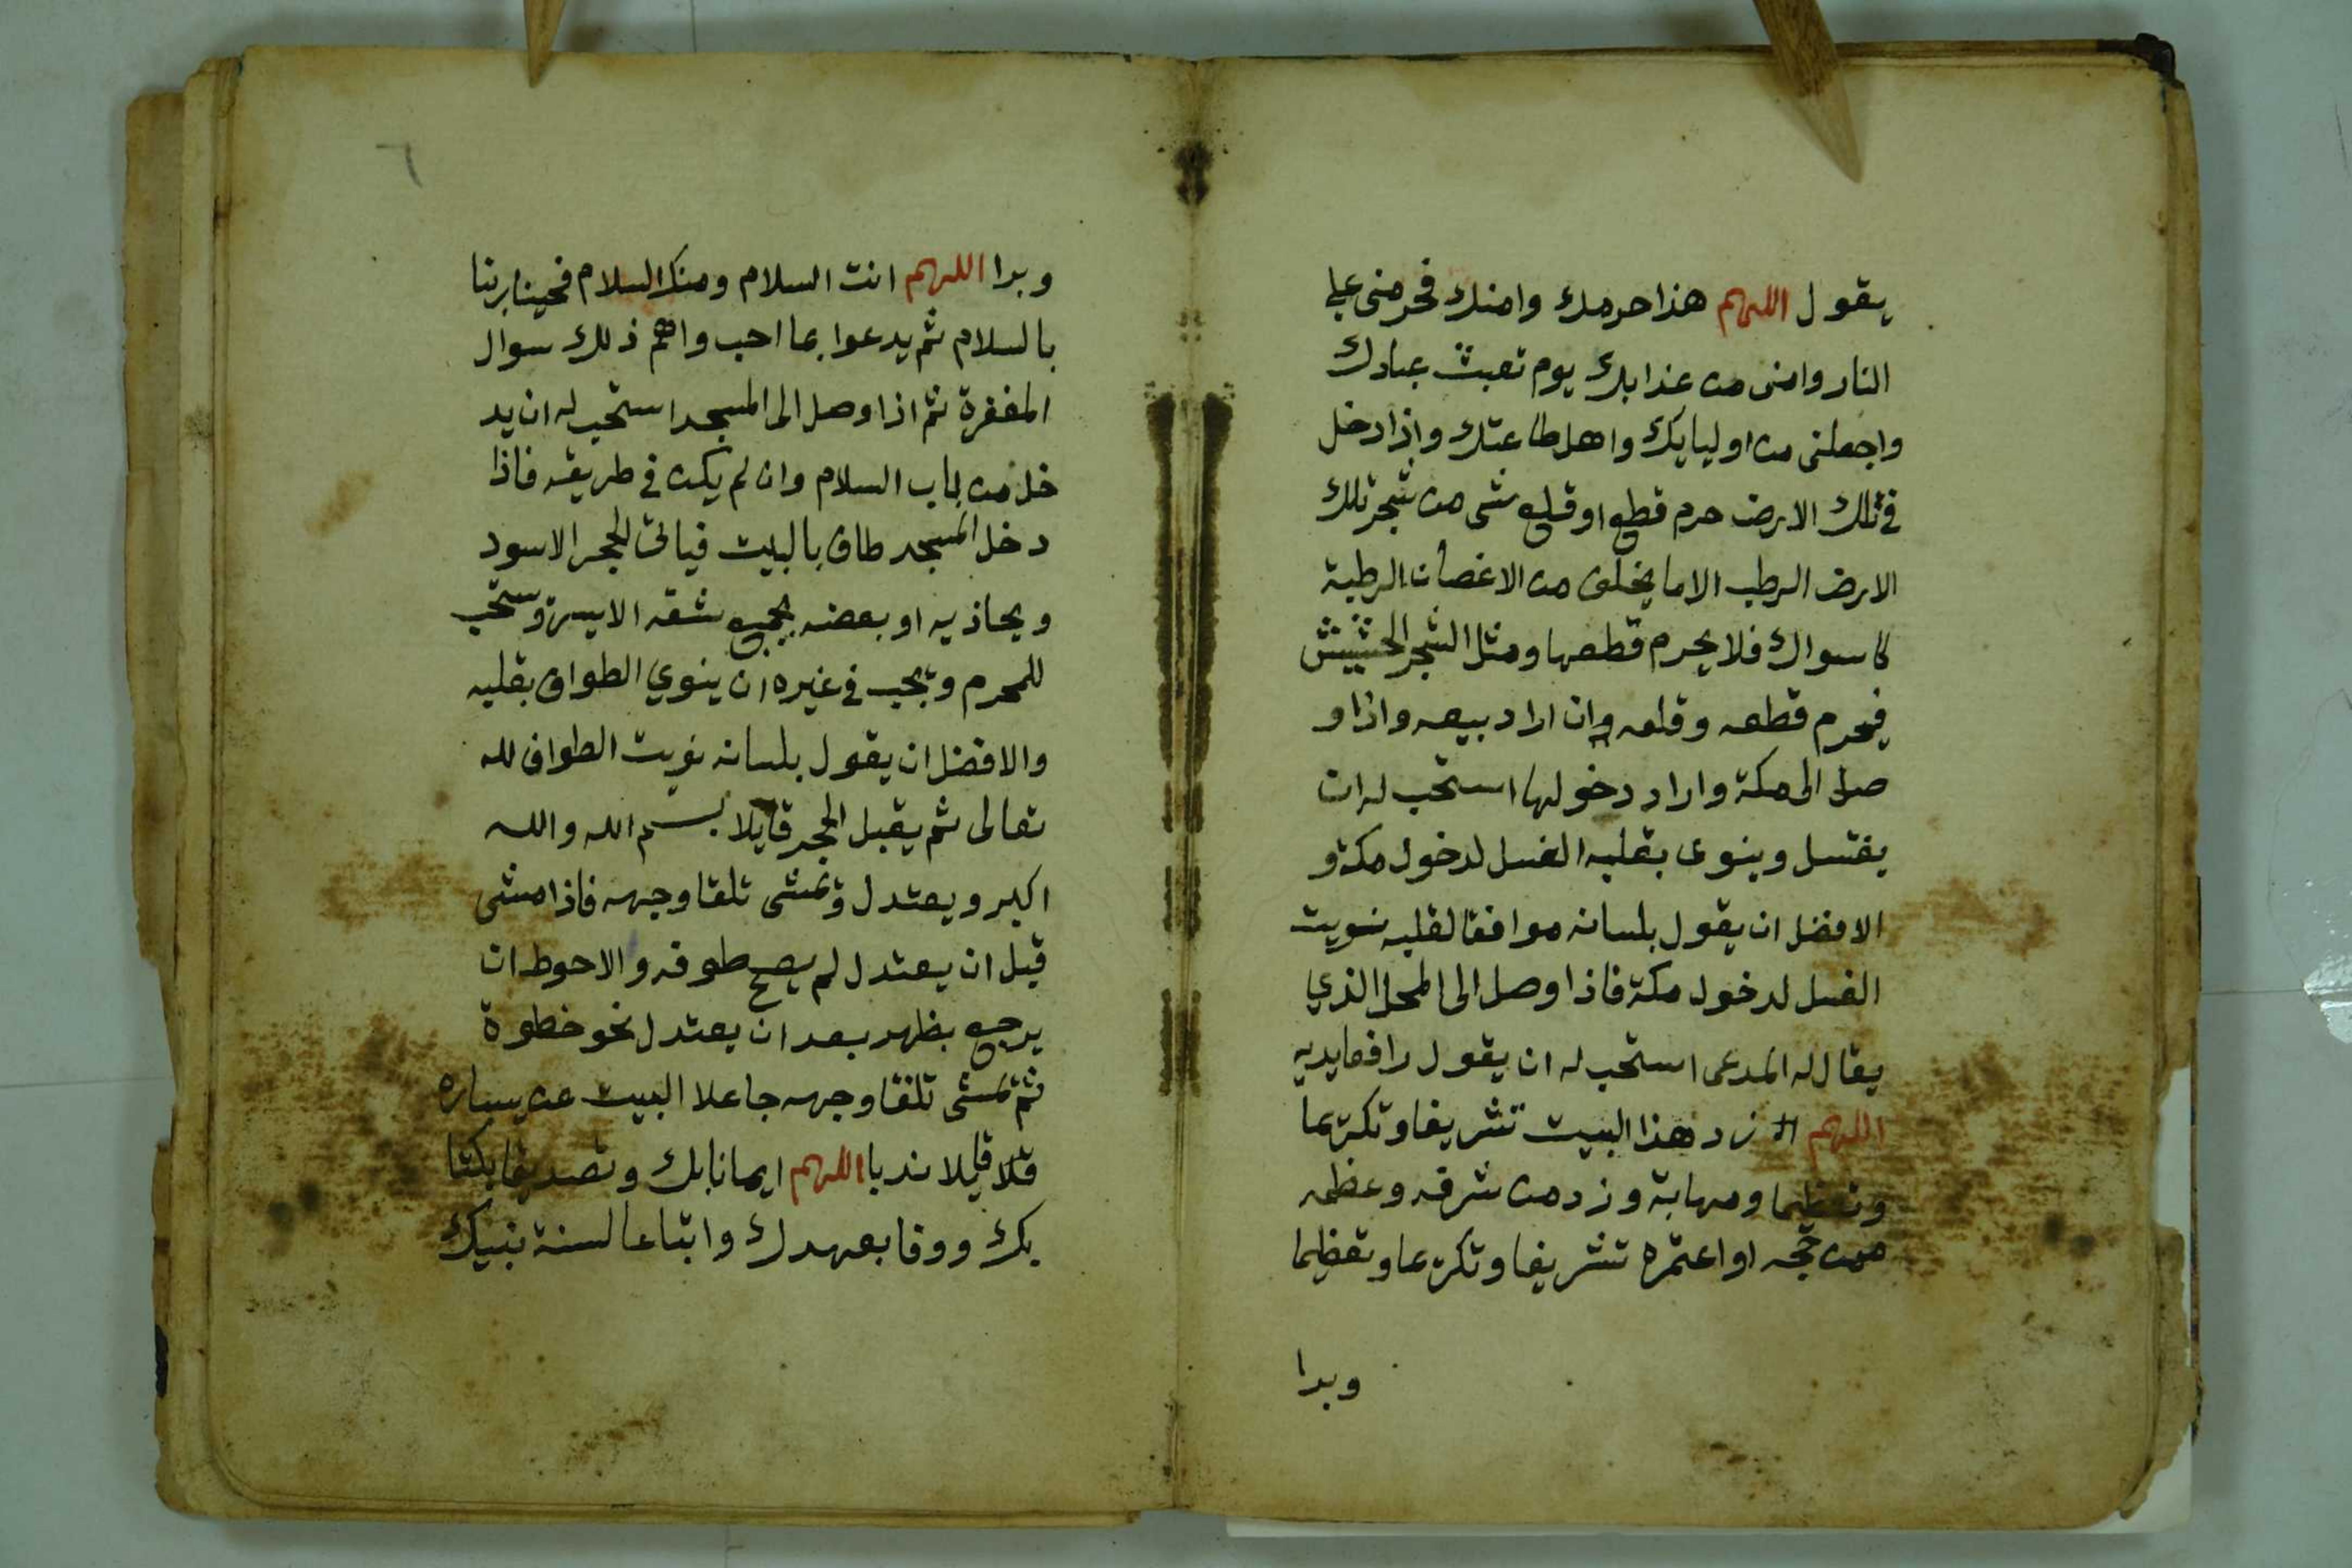 يقول اللهم هذا حرمك وامنك فحرمنى على
النار وامنى من عذابك يوم تبعث عبادك
واجعلنى من اوليايك واهل طاعتك واذا دخل
فى تلك الارض حرم قطع او قلع شى من شجر تلك
الارض الرطب الا ما يخلف من الاغصان الرطبة
كاسواك فلا يحرم قطعها ومثل الشجر الحشيش
فيحرم قطعه وقلعه وان اراد بيعه واذا و
صل الى مكة واراد دخولها استحب له ان
يغتسل وينوى بقلبه الغسل لدخول مكة و
الافضل ان يقول بلسانه موافقا لقلبه نويت
الغسل لدخول مكة فاذا وصل الى المحل الذي
يقال له المدعى استحب له ان يقول رافعا يديه
اللهم زد هذا البيت تشريفا وتكريما
وتعظيما ومهابة وزد من شرفه وعظمه
ممن حجه او اعتمره تشريفا وتكريما وتعظيما
وبرا
٦
وبرا اللهم انت السلام ومنك السلام فحينا ربنا
بالسلام ثم يدعوا بما احب واهم ذلك سوال
المغفرة ثم اذا وصل الى المسجد استحب له ان يد
خل من باب السلام وان لم يكن فى طريقه فاذا
دخل المسجد طاف بالبيت فياتى الحجر الاسود
ويحاذيه او بعضه بجميع شقه الايسر ويستحب
للمحرم ويجب فى غيره ان ينوي الطواف بقلبه
والافضل ان يقول بلسانه نويت الطواف لله
تعالى ثم يقبل الحجر قايلا بسم الله والله
اكبر ويعتدل ويمشى تلقا وجهه فاذا مشى
قبل ان يعتدل لم يصح طوفه والاحوط ان
يرجع بظهره بعد ان يعتدل نحو خطوة
ثم يمشى تلقا وجهه جاعلا البيت عن يساره
قايلا ندبا اللهم ايمانا بك وتصديقا بكتا
بك ووفا بعهدك واتباعا لسنة نبيك